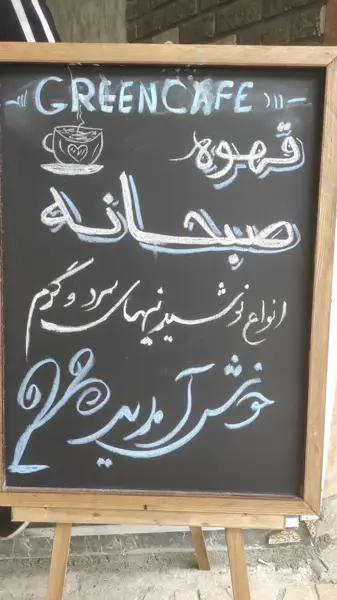 GREENCAFE
قهوه
صبحانه
انواع نوشیدنیهای سرد و گرم
خوش آمدید